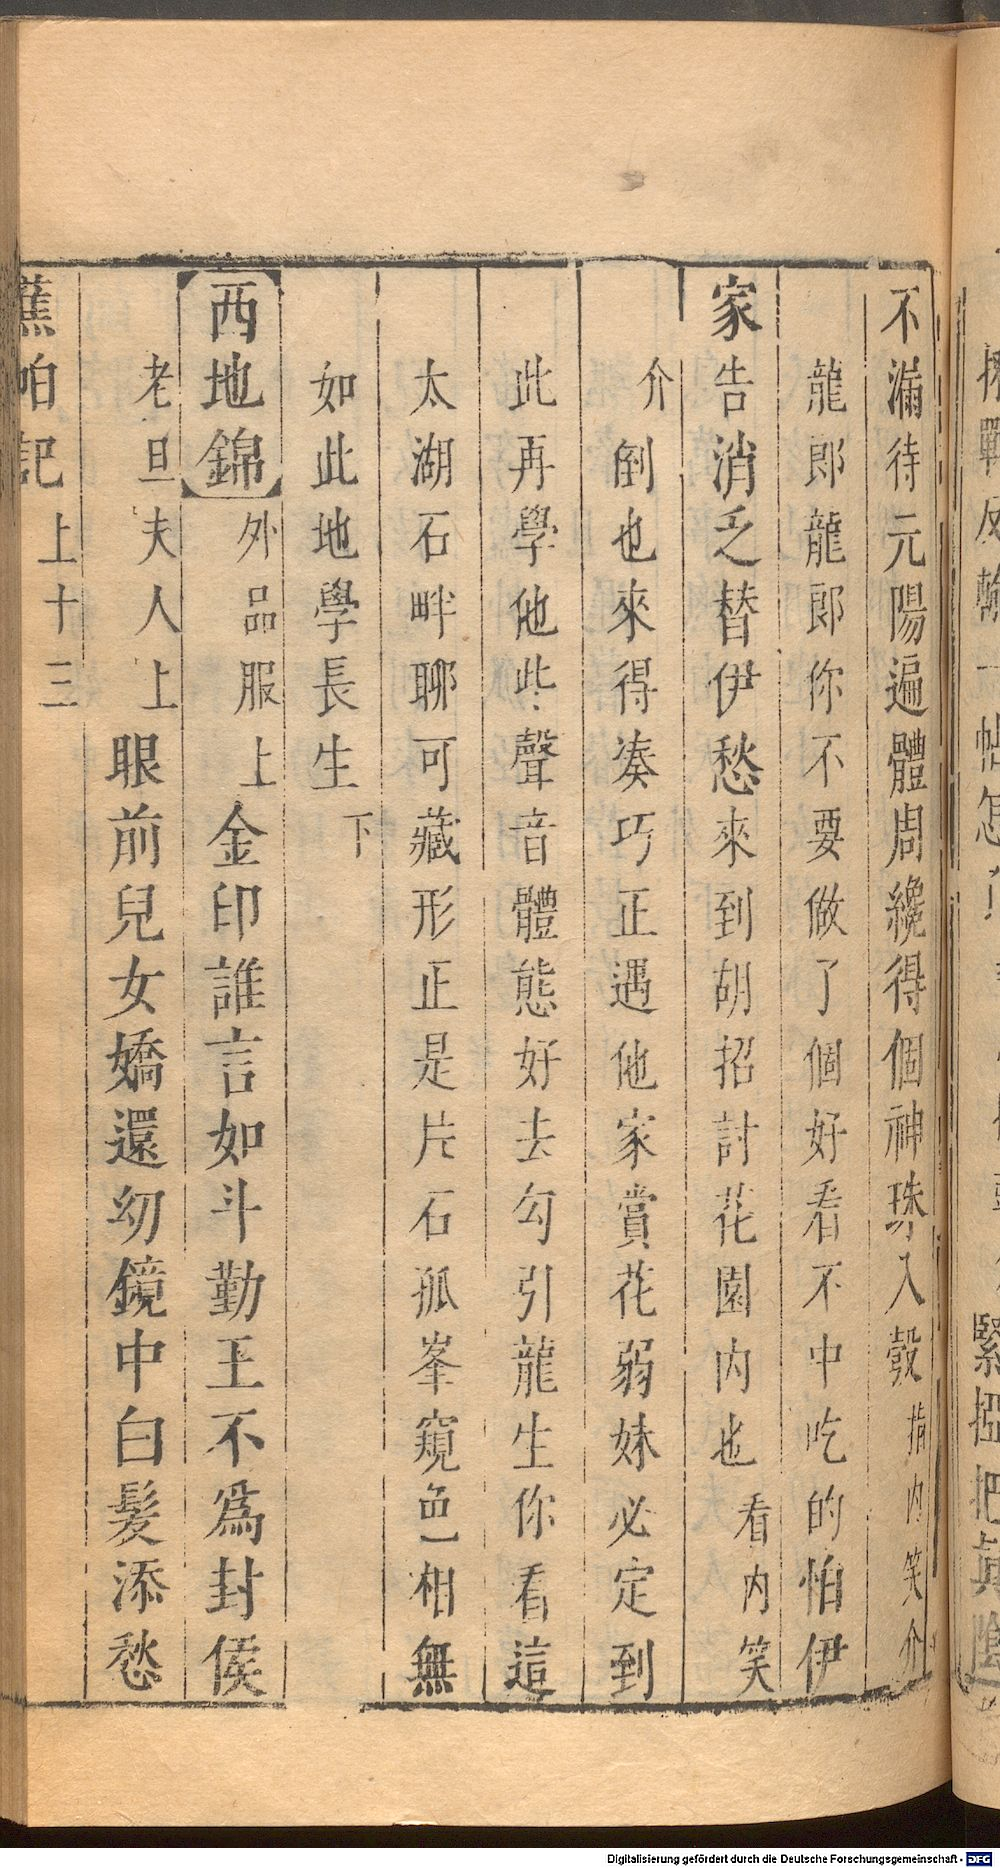 不漏待元陽遍體周纔得個神珠入彀指內笑介
龍郎龍郎你不要做了個好看不中吃的怕伊
家告消乏替伊愁來到胡招討花園內也看內笑
介倒也來得湊巧正遇他家賞花弱妹必定到
此再學他些聲音體態好去勾引龍生你看這
太湖石畔聊可藏形正是片石孤峯窺色相無
如此地學長生下
【西地錦】外品服上金印誰言如斗勤王不爲封侯
老旦夫人上眼前兒女嬌還幼鏡中白髮添愁
蕉帕記 上十三
Digitalisierung gefördert durch die Deutsche Forschungsgemeinschaft - DFG